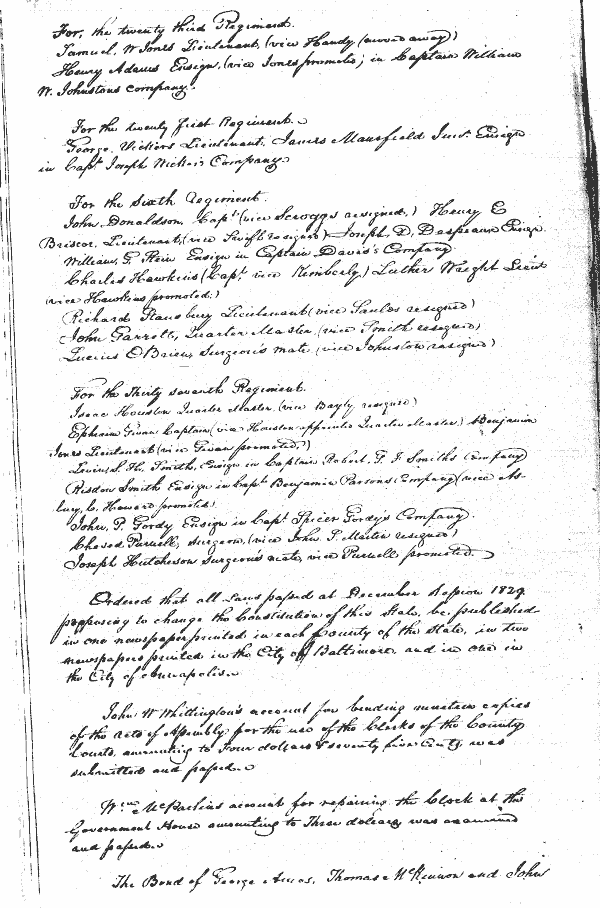 For, the twenty third Regiment.
Samuel, W Jones Lieutenant, (vice Handy (moved away)
Henry Adams Ensign, (vice Jones promote; in Captain William
W. Johnstons company.
For the twenty first Regiment.
George, Vickers Lieutenant, James Mansfield Junr. Ensign
in Capt. Joseph Company.
For the Sixth Regiment.
John, Donaldson, Capt. (vice Scroggs resigned,) Henry E
Briscoe, Lieutenant, (vice Swift resigned) Joseph, D, Despeaux Ensign
William, G Ensign in Captain Davis's Company
Charles Hawkins (Capt. vice Kimberly) Luther Wright Lieut
(vice Hawkins promoted;)
Richard Lieutenant (vice resigned)
John Garrett, Quarter Master, (vice Smith resigned)
Lucius O'Brien, Surgeon's mate (vice Johnston resigned)
For the Thirty seventh Regiment.
Isaac Houston Quarter Master, (vice Bayly resigned)
Ephraim Captain (vice Houston appointed Quarter Master) Benjamin
Jones Lieutenant (vice promoted,)
S. H. Smith, Ensign in Captain Robert, F. J. Smiths Company
Risdon Smith Ensign in Capt. Benjamin Parsons Company (vice As-
bury, C. Howard promoted)
John, P. Gordy Ensign in Capt. Spicer Gordy's Company.
Purnell, Surgeon, (vice John, S. Martin resigned)
Joseph Hutcheson Surgeon's mate, vice Purnell promoted.
Ordered that all Laws passed at December Session 1829
proposing to change the Constitution of this State, be published
in one newspaper printed in each County of the State, in two
newspapers printed in the City of Baltimore, and in one in
the City of Annapolis.
John W Whittington's account for binding nineteen copies
of the acts of Assembly, for the use of the Clerks of the County
Courts, amounting to Four dollars & seventy five Cents, was
submitted and passed.
Wm. account for repairing the Clock at the
Government House amounting to Three dollars was examined
and passed.
The Bond of George Amos, Thomas McKinnon and John